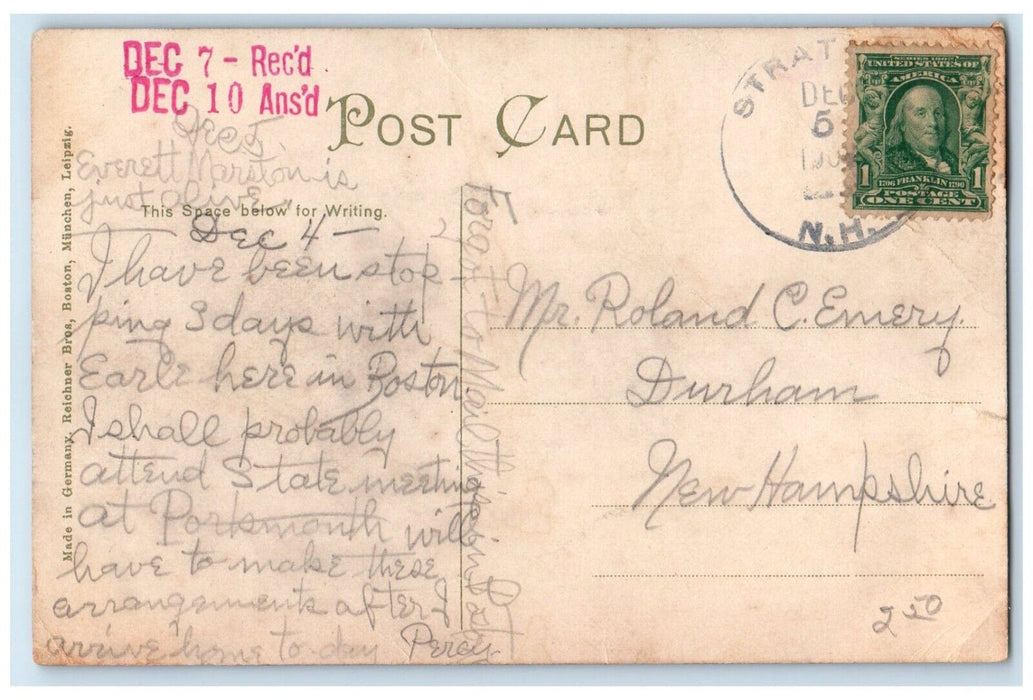 DEC 7 - Rec'd
DEC 10 Ans'd
POST CARD
STRAT
DEC
5
N.H.
SERIES 1902
UNITED STATES OF
AMERICA
1 1
1706 FRANKLIN 1790
POSTAGE
ONE CENT
Dec 5
Everett Marston is
just alive
This Space below for Writing.
Dec 4 -
I have been stop-
ping 3 days with
Earle here in Boston
I shall probably
attend State meeting
at Portsmouth will
have to make these
arrangements after I
arrive home to day Percy
Forgot to Mail this in Boston
Mr. Roland C. Emery.
Durham
New Hampshire
2 50
Made in Germany. Reichner Bros, Boston, München, Leipzig.